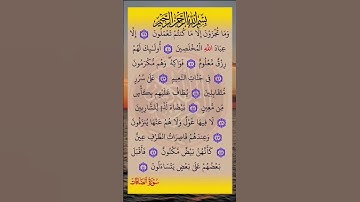 بِسْمِ اللَّهِ الرَّحْمَٰنِ الرَّحِيمِ
وَمَا تُجْزَوْنَ إِلَّا مَا كُنْتُمْ تَعْمَلُونَ إِلَّا
عِبَادَ اللَّهِ الْمُخْلَصِينَ أُولَٰئِكَ لَهُمْ
رِزْقٌ مَعْلُومٌ فَوَاكِهُ وَهُمْ مُكْرَمُونَ
فِي جَنَّاتِ النَّعِيمِ عَلَىٰ سُرُرٍ
مُتَقَابِلِينَ يُطَافُ عَلَيْهِمْ بِكَأْسٍ
مِنْ مَعِينٍ بَيْضَاءَ لَذَّةٍ لِلشَّارِبِينَ
لَا فِيهَا غَوْلٌ وَلَا هُمْ عَنْهَا يُنْزَفُونَ
وَعِنْدَهُمْ قَاصِرَاتُ الطَّرْفِ عِينٌ
كَأَنَّهُنَّ بَيْضٌ مَكْنُونٌ فَأَقْبَلَ
بَعْضُهُمْ عَلَىٰ بَعْضٍ يَتَسَاءَلُونَ
سُورَةُ الصَّافَّاتِ